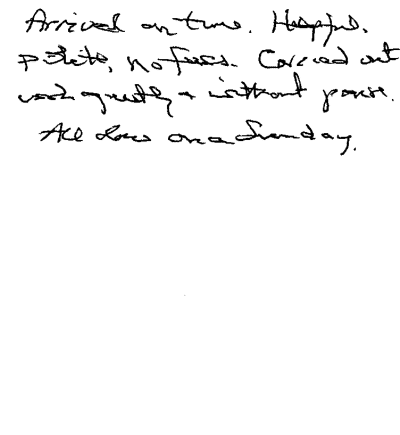 Arrived on time. Helpful.
polite, no fuss. Carried out
work quietly + without pause.
All done on a Sunday.